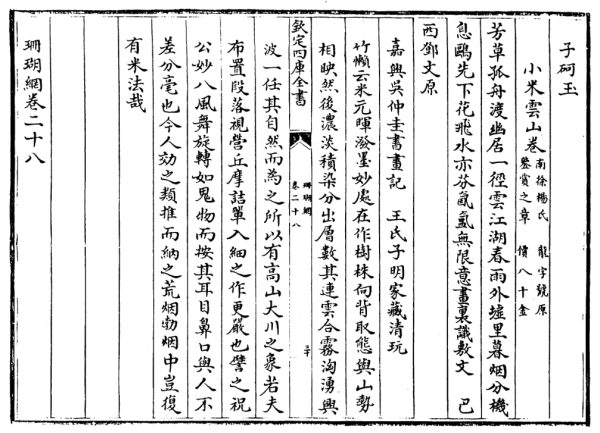 子砢玉
小米雲山卷 南徐楊氏鑒賞之章 龍字號原價八十金
芳草孤舟渡幽居一徑雲江湖春雨外墟里暮烟分機
息鷗先下花飛水亦芬氤氳無限意畫裏識敷文 巴
西鄧文原
嘉興吳仲圭書畫記 王氏子明家藏清玩
竹懶云米元暉潑墨妙處在作樹株向背取態與山勢
相映然後濃淡積染分出層數其連雲合霧洶湧興
欽定四庫全書
珊瑚網
卷二十八
三十
波一任其自然而為之所以有高山大川之象若夫
布置段落視營丘摩詰單入細之作更嚴也譬之祝
公妙八風舞旋轉如鬼物而按其耳目鼻口與人不
差分毫也今人効之類推而納之荒烟勃烟中豈復
有米法哉
珊瑚網卷二十八